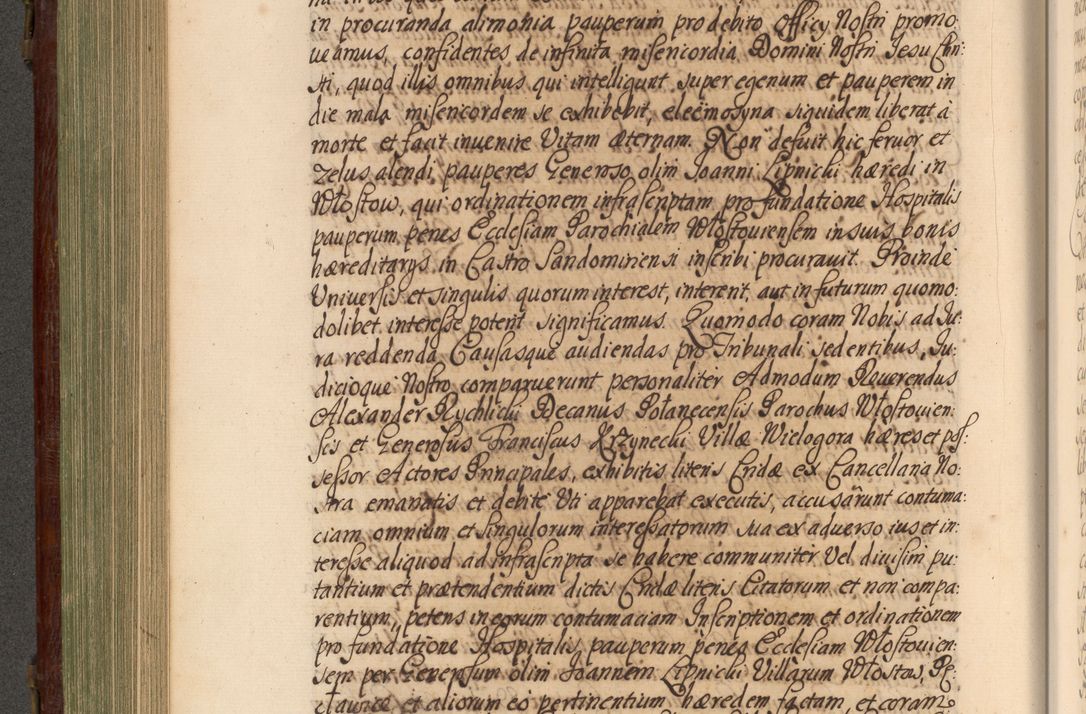 in procuranda alimonia pauperum pro debito Officÿ Nostri promo:
veamus, confidentes de infinita misericordia Domini Nostri Jesu Chri:
sti, quod illis omnibus qui intelligunt super egenum et pauperem in
die mala misericordem se exhibebit, eleëmosyna siquidem liberat à
morte et facit invenire Vitam æternam. Non defuit hic fervor et
zelus alendi pauperes Generoso olim Joanni Lipnicki hæredi in
Włostow, qui ordinationem infrascriptam pro fundatione Hospitalis
pauperum penes Ecclesiam Parochialem Włostoviensem in suis bonis
hæreditarÿs in Castro Sandomiriensi inscribi procuravit. Proinde
Universis et singulis quorum interest, intererit, aut in futurum quomo:
dolibet interesse poterit significamus. Quomodo coram Nobis ad Ju:
ra reddenda Causasque audiendas pro Tribunali sedentibus, Ju:
dicioque Nostro comparuerunt personaliter Admodum Reverendus
Alexander Rychlicki Decanus Połanecensis Parochus Włostovien:
sis et Generosus Franciscus Krzynecki Villæ Wielogora hæres et pos:
sessor Actores Principales, exhibitis literis Cridæ ex Cancellaria No:
stra emanatis et debite Uti apparebat executis, accusârunt contuma:
ciam omnium et singulorum interessatorum sua ex adverso ius et in:
teresse aliquod ad infrascripta se habere communiter Vel divisim pu:
tantium et prætendentium dictis Cridæ literis Citatorum et non compa:
rentium, petens in eorum contumaciam Inscriptionem et ordinationem
pro fundatione Hospitalis, pauperum penes Ecclesiam Włostovien:
sem per Generosum olim Joannem Lipnicki Villarum Włostow, Pe:
cławice et aliorum eò pertinentium hæredem factam, et coram